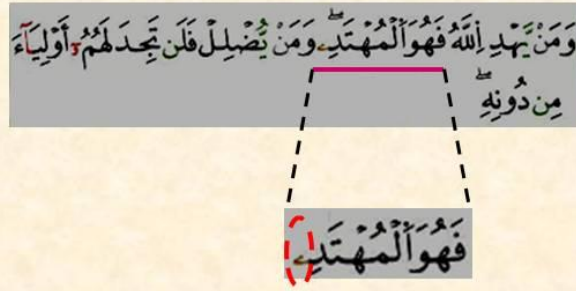 وَمَنْ يَّهْدِ اِ۬للَّهُ فَهُوَ اَ۬لْمُهْتَدِے ۖ وَمَنْ يُّضْلِلْ فَلَن تَجِدَ لَهُمُۥٓ أَوْلِيَآءَ
مِن دُونِهِۦ ۖ
فَهُوَ اَ۬لْمُهْتَدِے